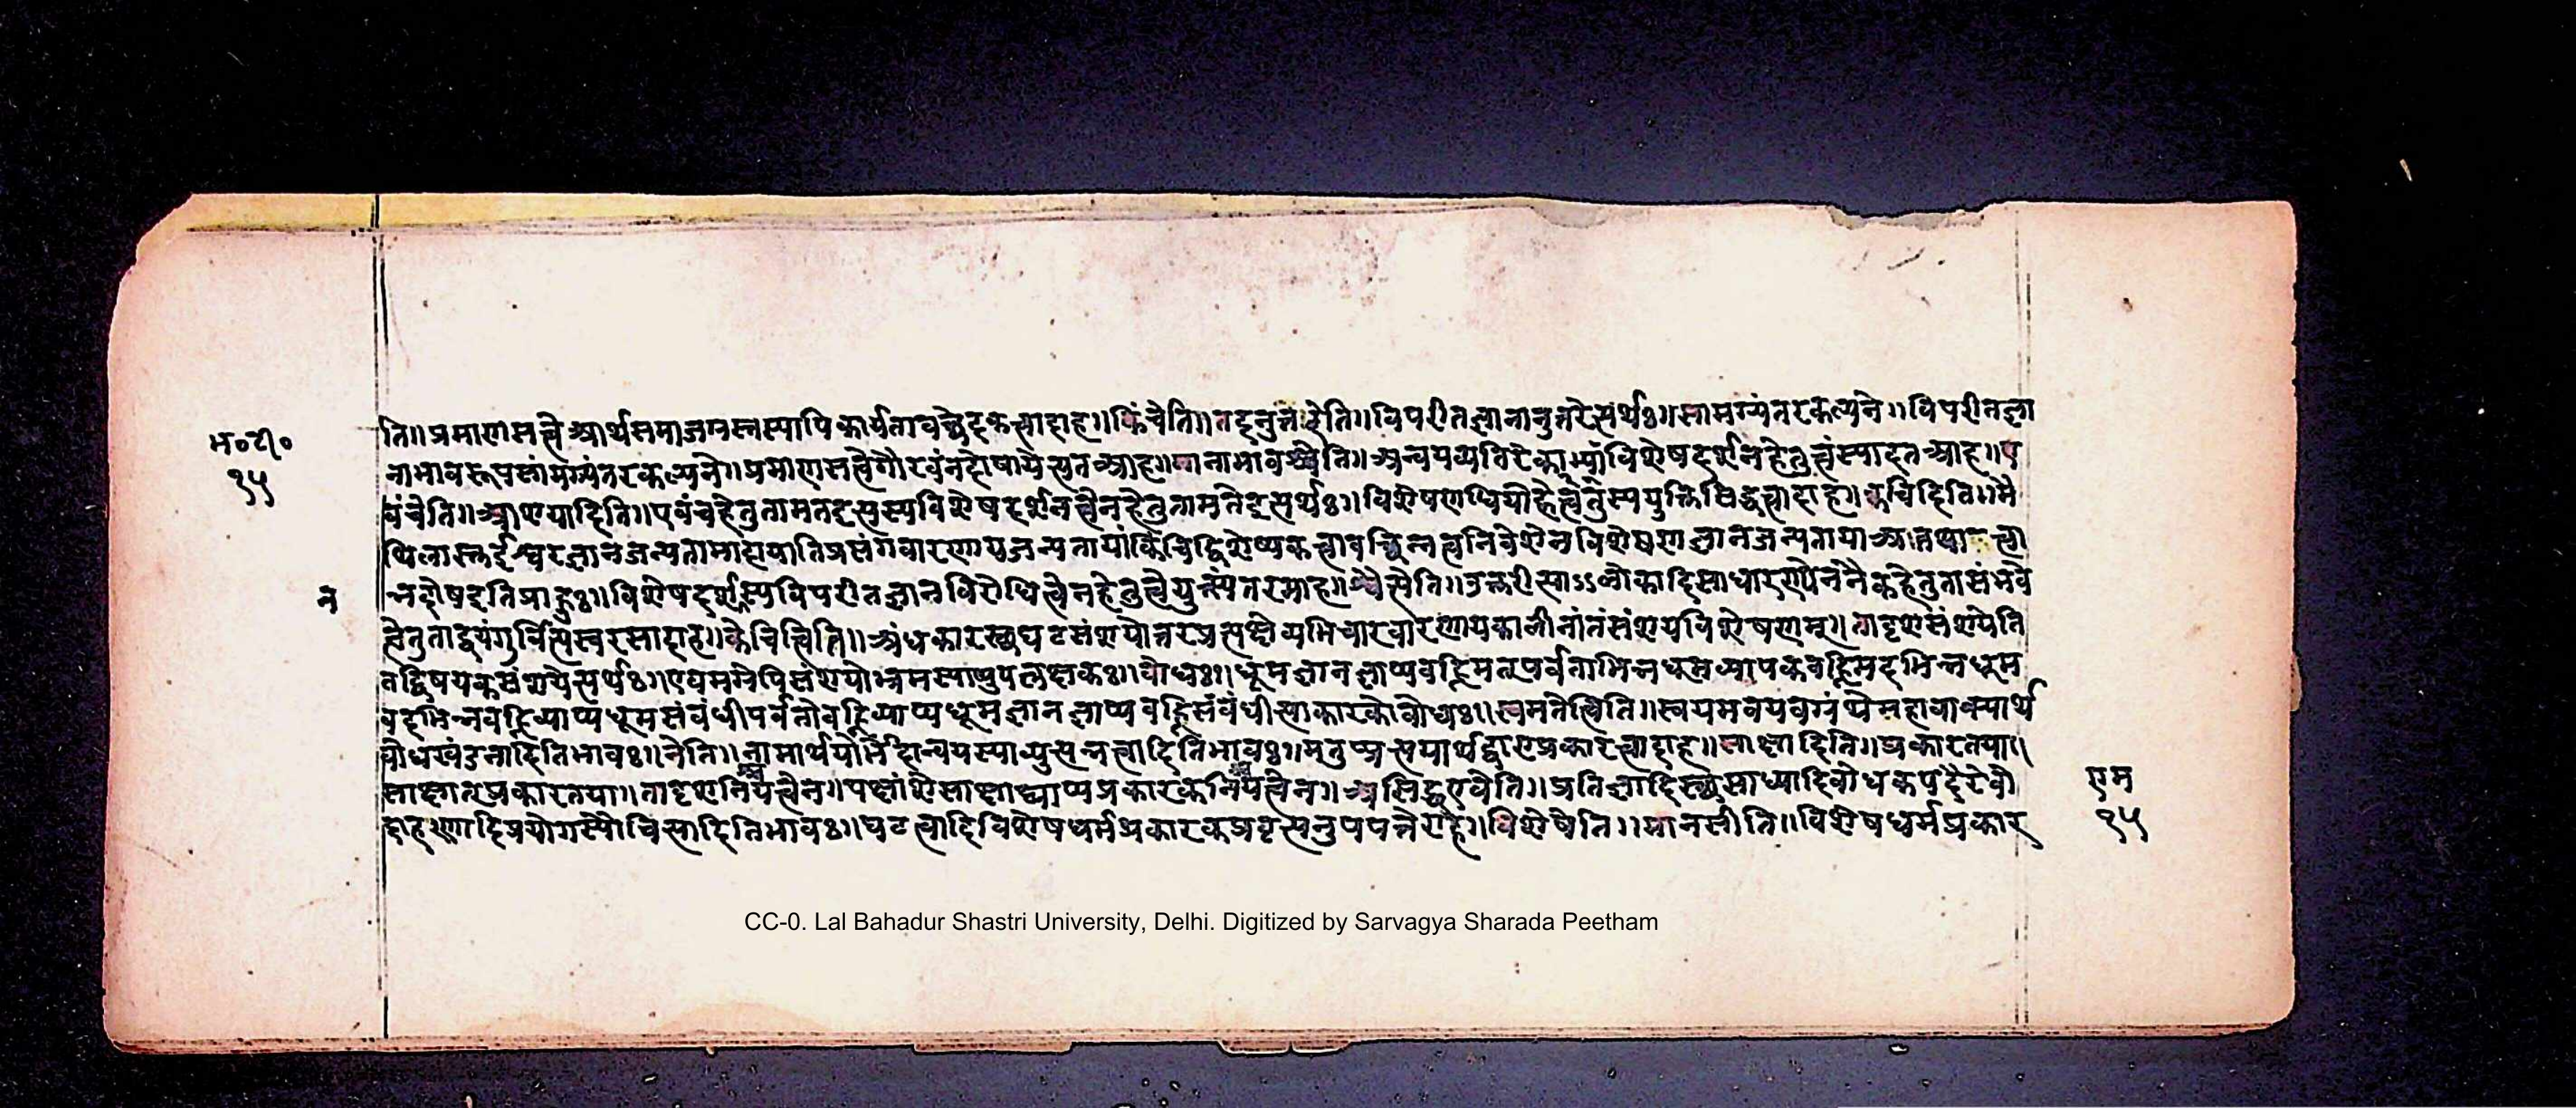 म॰टी॰
१५
ति॥प्रमाणसत्वे आर्थसमाजग्रस्तस्यापिकार्यतावच्छेदकत्वादाह॥किंचेति॥तदनुत्तरेति॥विपरीतज्ञानानुत्तरेत्यर्थः॥सामग्र्यंतरकल्पने॥विपरीतज्ञा
नाभावरूपसामग्र्यंतरकल्पने॥प्रमाणसत्वेगौरवंनदोषायेत्यतआह॥मानाभावाच्चेति॥अन्वयव्यतिरेकाभ्यांविशेषदर्शनहेतुत्वंस्यादतआह॥ए
वंचेति॥आशयादिति॥एवंचहेतुतामतइत्यस्यविशेषदर्शनत्वेनहेतुतामतेइत्यर्थः॥विशेषणधियोहेतुत्वस्ययुक्तिसिद्धत्वादाह॥केचिदिति॥मै
थिलास्तुईश्वरज्ञानजन्यतामादायातिप्रसंगवारणायजन्यतायांकिंचिद्विशेष्यकत्वावच्छिन्नत्वनिवेशेनविशेषणज्ञानजन्यतायाअतथात्वा
न
न्नदोषइतिप्राहुः॥विशेषदर्शस्यविपरीतज्ञानविरोधित्वेनहेतुत्वेयुक्त्यंतरमाह॥ इति॥उत्तरीत्याऽऽलोकादिसाधारण्येननैकहेतुतासंभवे
त्वेतुताद्वयंगुर्वित्यस्वरसादाह॥केचित्त्विति॥अंधकारस्थघटसंशयोत्तरप्रत्यक्षेव्यभिचारवारणायकालीनांतंसंशयविशेषणम्॥तादृशसंशयेति
तद्विषयकसंशयेत्यर्थः॥एवमग्रेपिसंशयोभ्रमस्याप्युपलक्षकः॥बोधः॥धूमज्ञानज्ञाप्यवह्निमत्पर्वताभिन्नधूमव्यापकवह्निमदभिन्नधूम
वदभिन्नवह्निव्याप्यधूमसंबंधीपर्वतोवह्निव्याप्यधूमज्ञानज्ञाप्यवह्निसंबंधीत्याकारकोबोधः॥त्वमतेत्विति॥स्वयमवयवग्रंथेमहावाक्यार्थ
बोधखंडनादितिभावः॥नेति॥नामार्थयोर्भेदान्वयस्याव्युत्पन्नत्वादितिभावः॥मतुप्प्रत्ययार्थद्वाराप्रकारत्वादाह॥साक्षादिति॥प्रकारतया॥
साक्षात्प्रकारतया॥तादृशनिश्चयत्वेन॥पक्षांशेसाक्षाद्व्याप्यप्रकारकनिश्चयत्वेन॥असिद्धएवेति॥प्रतिज्ञादिस्थसाध्यादिबोधकपदैरेवो
दाहरणादिप्रयोगस्यौचित्यादितिभावः॥घटत्वादिविशेषधर्मप्रकारकप्रवृत्त्यनुपपत्तेराह॥विशेषेति॥मानसीति॥विशेषधर्मप्रकार
एम
१५
CC-0. Lal Bahadur Shastri University, Delhi. Digitized by Sarvagya Sharada Peetham